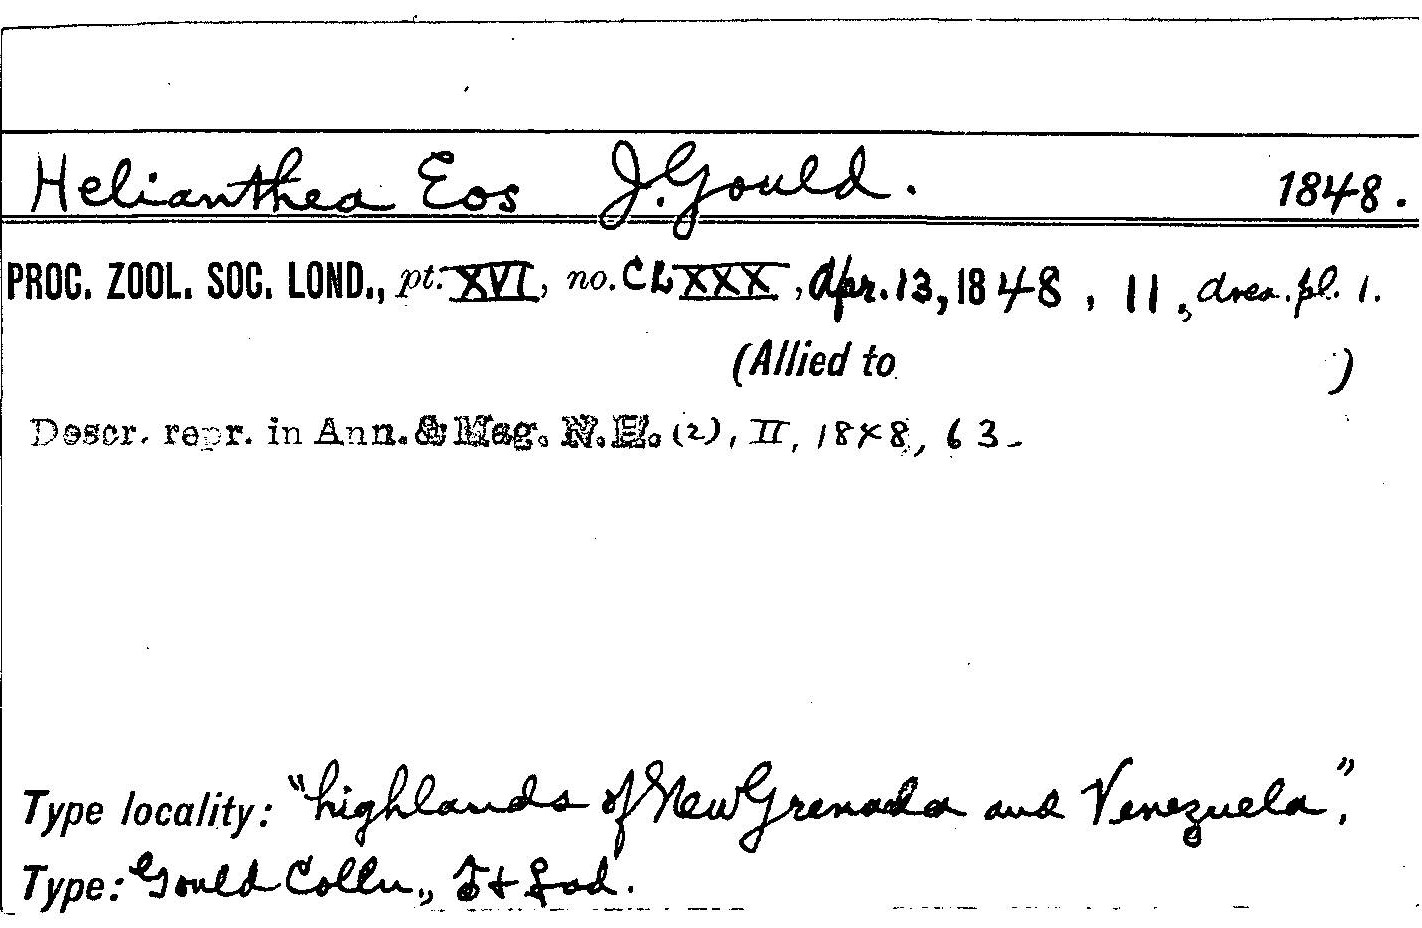 Helianthea Eos J. Gould. 1848.
PROC. ZOOL. SOC. LOND., pt. XVI, no. CLXXX, Apr. 13, 1848, 11, pl. 1.
(Allied to )
Descr. repr. in Ann. & Mag. N. H. (2), II, 1848, 63-
Type locality: "highlands of New Grenada and Venezuela".
Type: Gould Colln., ♂ + ♀ ad.